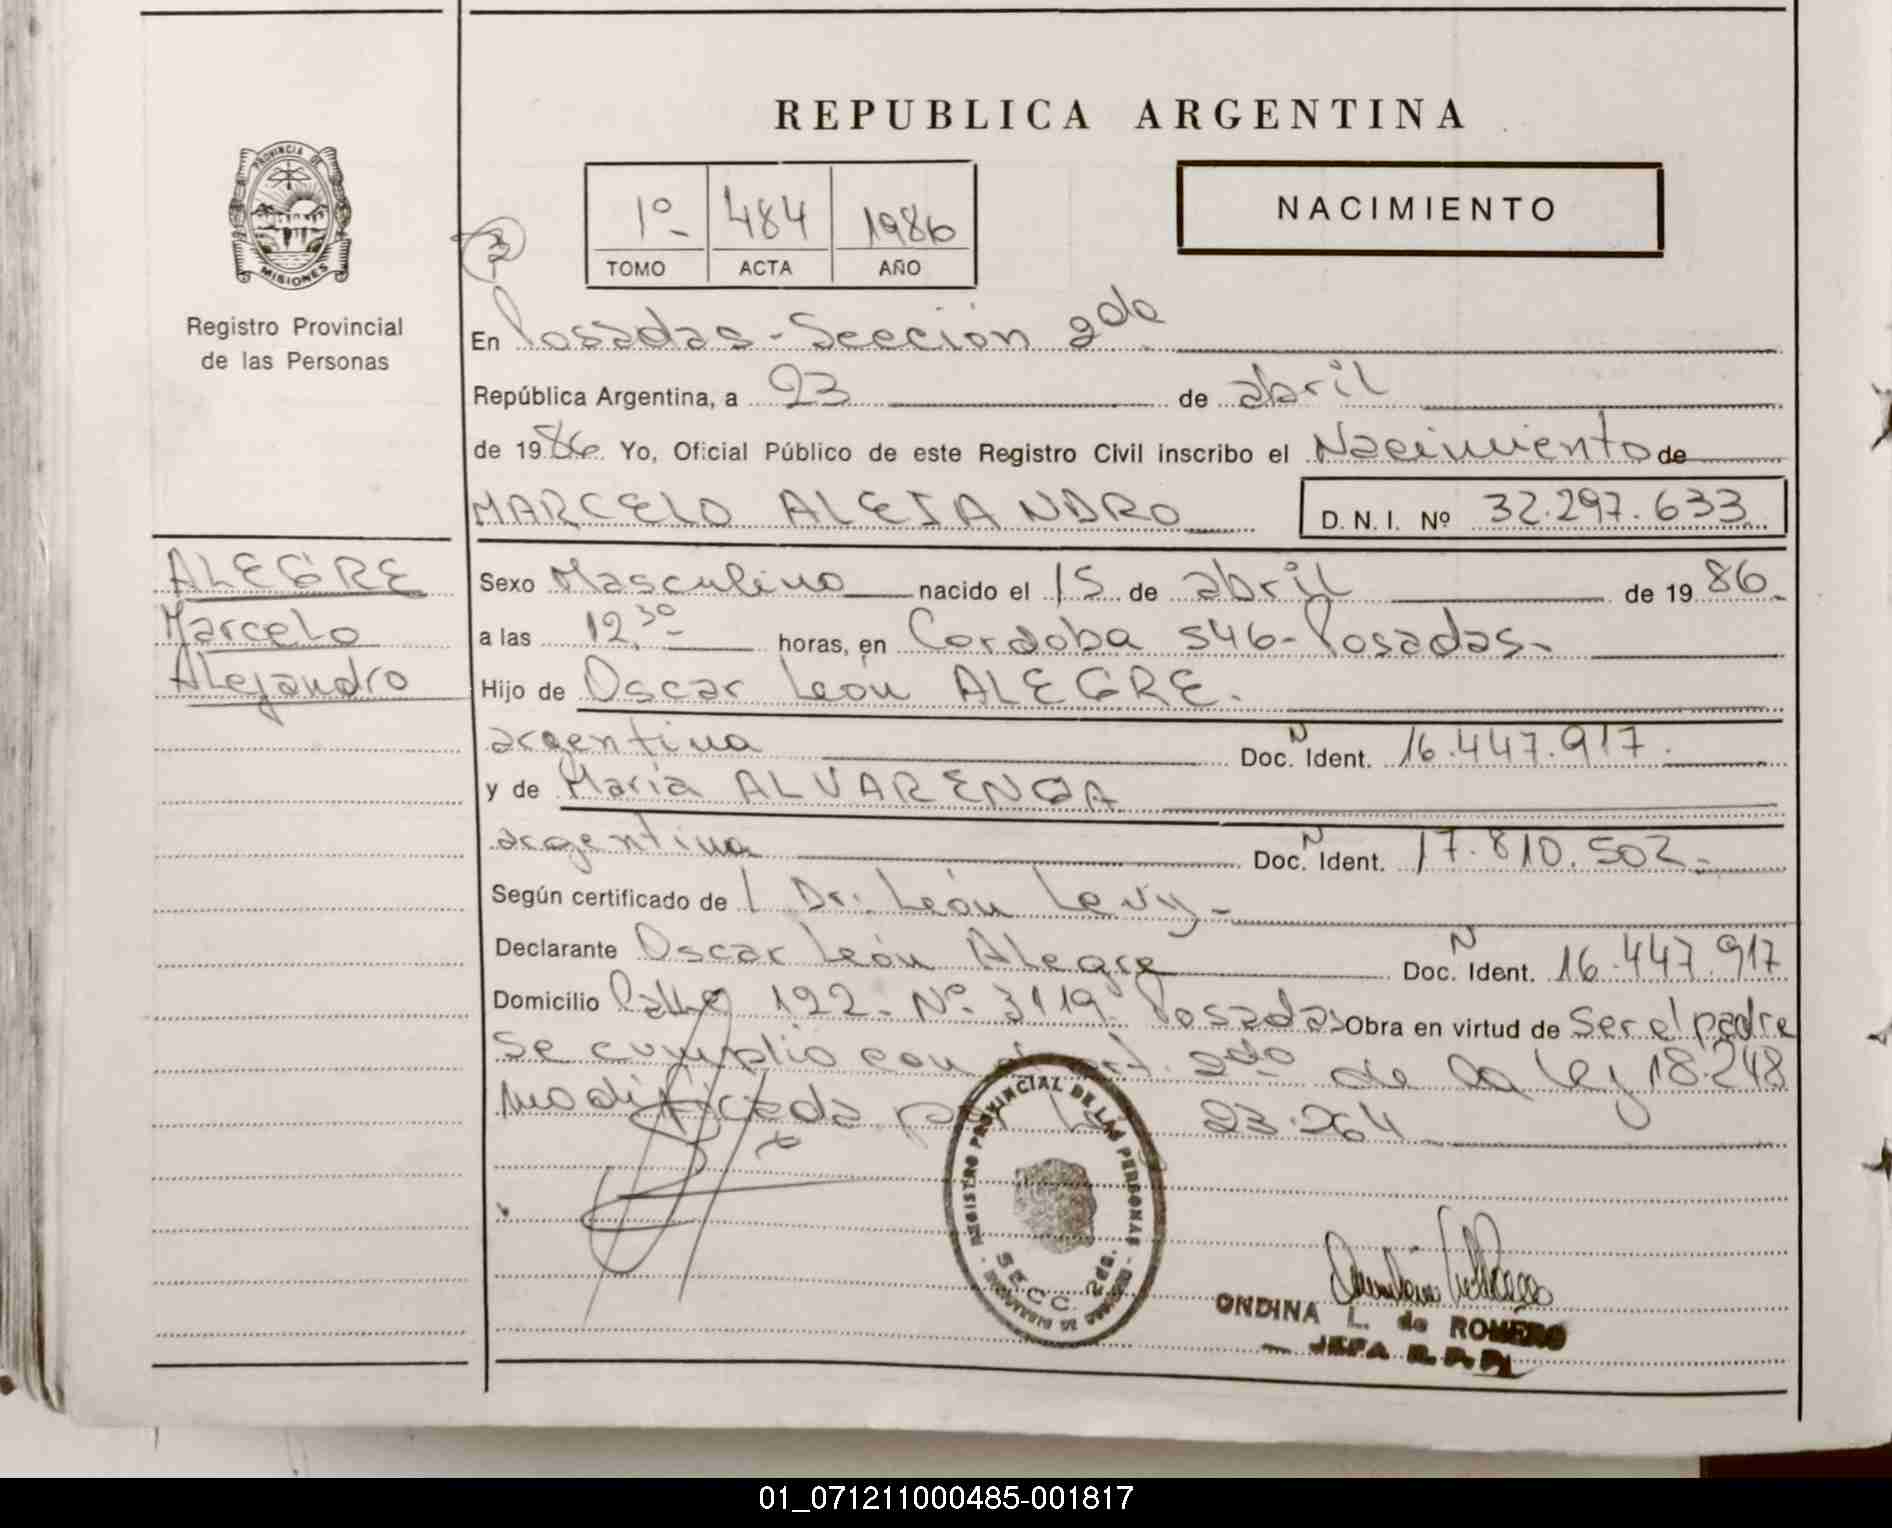 REPUBLICA ARGENTINA
PROVINCIA DE
MISIONES
Registro Provincial
de las Personas
1º 484 1986
TOMO ACTA AÑO
NACIMIENTO
En Posadas - Sección 2da
República Argentina, a 23 de abril
de 1986 Yo, Oficial Público de este Registro Civil inscribo el Nacimiento de
MARCELO ALEJANDRO D. N. I. Nº 32.297.633
ALEGRE
Marcelo
Alejandro
Sexo Masculino nacido el 15 de abril de 1986.
a las 12.30 horas, en Cordoba 546 - Posadas -
Hijo de Oscar León ALEGRE.
argentina Doc. N Ident. 16.447.917.
y de María ALVARENGA
argentina Doc. N Ident. 17.810.502.
Según certificado de l Dr. León Levy -
Declarante Oscar León Alegre Doc. N Ident. 16.447.917
Domicilio Calle 122 - Nº 3119 Posadas Obra en virtud de ser el padre
Se cumplio con el art. 2do de la Ley 18.248
modificada por Ley 23.264
REGISTRO PROVINCIAL DE LAS PERSONAS
SECC. 2da.
ONDINA L. de ROMERO
JEFA R. P. P.
01_071211000485-001817